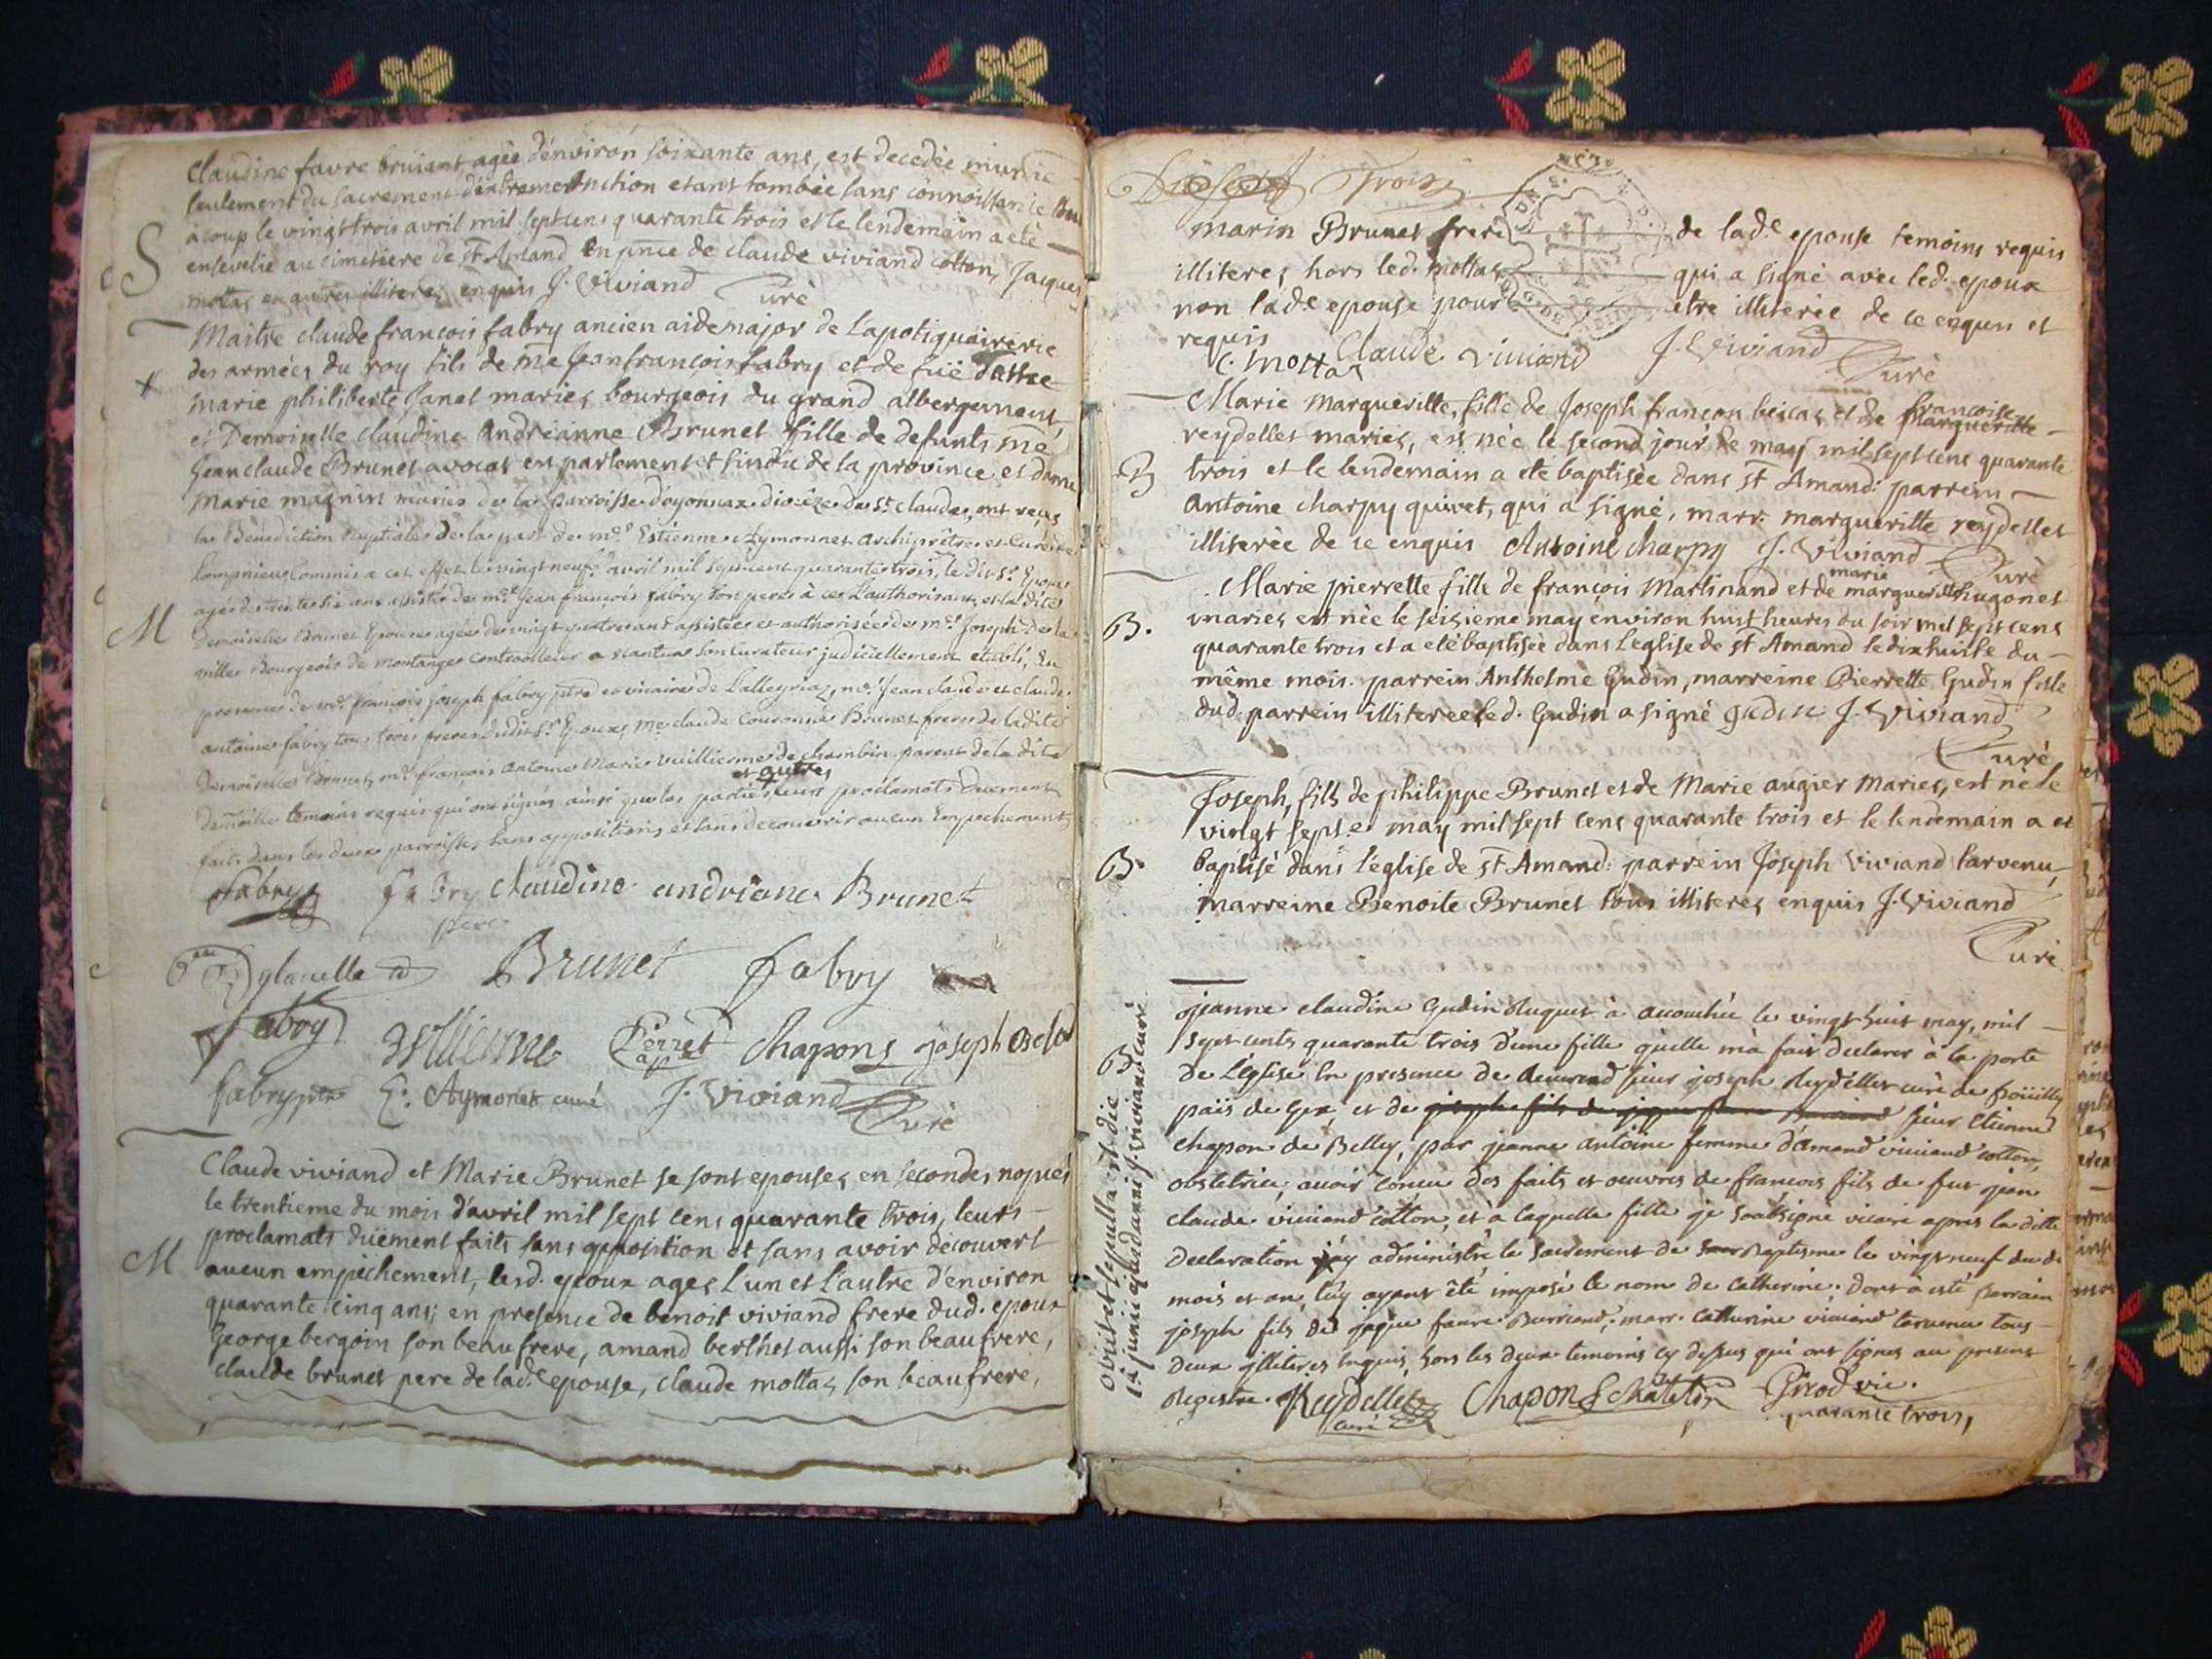 Claudine favre bruiant agée d'environ soixante ans, est decedée munie
seulement du sacrement d'extremeonction etant tombée sans connoissance tout
à coup le vingt trois avril mil sept cens quarante trois et le lendemain a eté
S
ensevelie au cimetiere de st Amand en pnce de claude viviand cotton, Jacques
mottas en autres illiteres enquis J. Viviand Curé
Maitre claude françois fabry ancien aide major de l'apotiquairerie
des armées du roy fils de me Jean françois fabry et de füe dame
x
marie philiberte Janet mariés bourgeois du grand albergement,
et Demoiselle claudine Andréanne Brunet fille de defunts me
Jean claude Brunet avocat en parlement et sindic de la province et dame
Marie magnin mariés de la parroisse d'oyonnax dioceze de st. claude, ont reçus
la Bénédiction Nuptiale de la part de mre Estienne Aymonnet Archiprêtre et Curé de
lompnieu Commis a cet effet le vingt neuf avril mil sept cent quarante trois, le dit sr. Epoux
agé de trente six ans assisté de mre jean françois fabry son pere à ce l'authorisant, et la dite
M
Demoiselle Brunet Epouse agée de vingt quatre ans assistée et authorisée de mre Joseph de la
ville Bourgeois de montange controolleur a nantua son curateur judiciellement etabli, En
presence de mre françois joseph fabry ptre et vicaire de Lalleyriaz, mre Jean claude et claude
antoine fabry tous trois freres dudit sr. Epoux, me claude couronné Brunet frere de la dite
Demoiselle Brunet, mre françois Antoine Marie vuillierme de chambin parent de la dite
et autres
damoiselle temoins requis qui ont signés ainsi que les parties, leurs proclamats Duement
faits dans les deux parroisses sans oppositions et sans decouvrir aucun Empechement
Fabry fabry claudine andriane Brunet
pere
Brunet fabry
fabry vuillierme Perret chapons joseph
fabry ptre E. Aymonet curé J. Viviand Curé
Claude viviand et Marie Brunet se sont epousés en secondes nopces
le trentieme du mois d'avril mil sept cens quarante trois, leurs
proclamats düement faits sans opposition et sans avoir découvert
M
aucun empechement, lesd. epoux agés l'un et l'autre d'environ
quarante cinq ans; en presence de benoit viviand frere dud. epoux
George bergoin son beaufrere, amand berthet aussi son beaufrere,
claude brunet pere de lade epouse, claude mottas son beaufrere,
Trois
marin Brunet frere de lade epouse temoins requis
illiteres hors led. mottas qui a signé avec led. epoux
non lade epouse pour etre illiterée de ce enquis et
requis
C. Mottas Claude Viviand J. Viviand Curé
Marie Marguerite, fille de Joseph françon beicas et de françoise Marguerite
reydellet mariés, est née le second jour de may mil sept cens quarante
B
trois et le lendemain a ete baptisée dans st Amand: parrein
Antoine charpy quivet, qui a signé, marr. margueritte reydellet
illiterée de ce enquis Antoine charpy J. Viviand Curé
marie
Marie pierrette fille de françois Martinand et de margueritte hugonet
B.
mariés est née le seisieme may environ huit heures du soir mil sept cens
quarante trois et a eté baptisée dans l'eglise de st Amand le dixhuite du
même mois. parrein Anthelme Gudin, marreine Pierrette Gudin fille
dud. parrein illiteree led. Gudin a signé gudin J. Viviand
Curé
Joseph, fils de philippe Brunet et de Marie augier Mariés, est né le
vingt sept e may mil sept cens quarante trois et le lendemain a eté
B.
baptisé dans l'eglise de st Amand: parrein Joseph Viviand tarvenu,
marreine Benoite Brunet tous illiteres enquis J. Viviand
Curé
jeanne claudine Gudin Ruquet à accouchée le vingt huit may, mil
sept cents quarante trois d'une fille qu'elle m'a fait declarer à la porte
de l'église En presence de Reverend sieur joseph Reydellet curé de poüilly
païs de Gex, et de joseph fils de jaque favre sieur Etienne
chapon de Belley, par jeanne antoine femme d'amand viviand cotton,
obstetrice, avoir concue des faits et oeuvres de francois fils de feu jean
claude viviand cotton, et à laquelle fille je soubsigné vicaire apres la ditte
declaration j'ay administré le sacrement de Baptisme le vingt neuf du dt
mois et an, luy ayant été imposé le nom de catherine; dont à esté parrain
joseph fils de jaque favre Burriand; marr. catherine viviand tarvenu tous
deux illiteres enquis, hors les deux temoins cy dessus qui ont signés au present
Registre. Reydellet curé Chapon Girod vic.
quarante trois,
B
obiit et sepulta est die
1a junii ejusdem anni J. Viviand curé